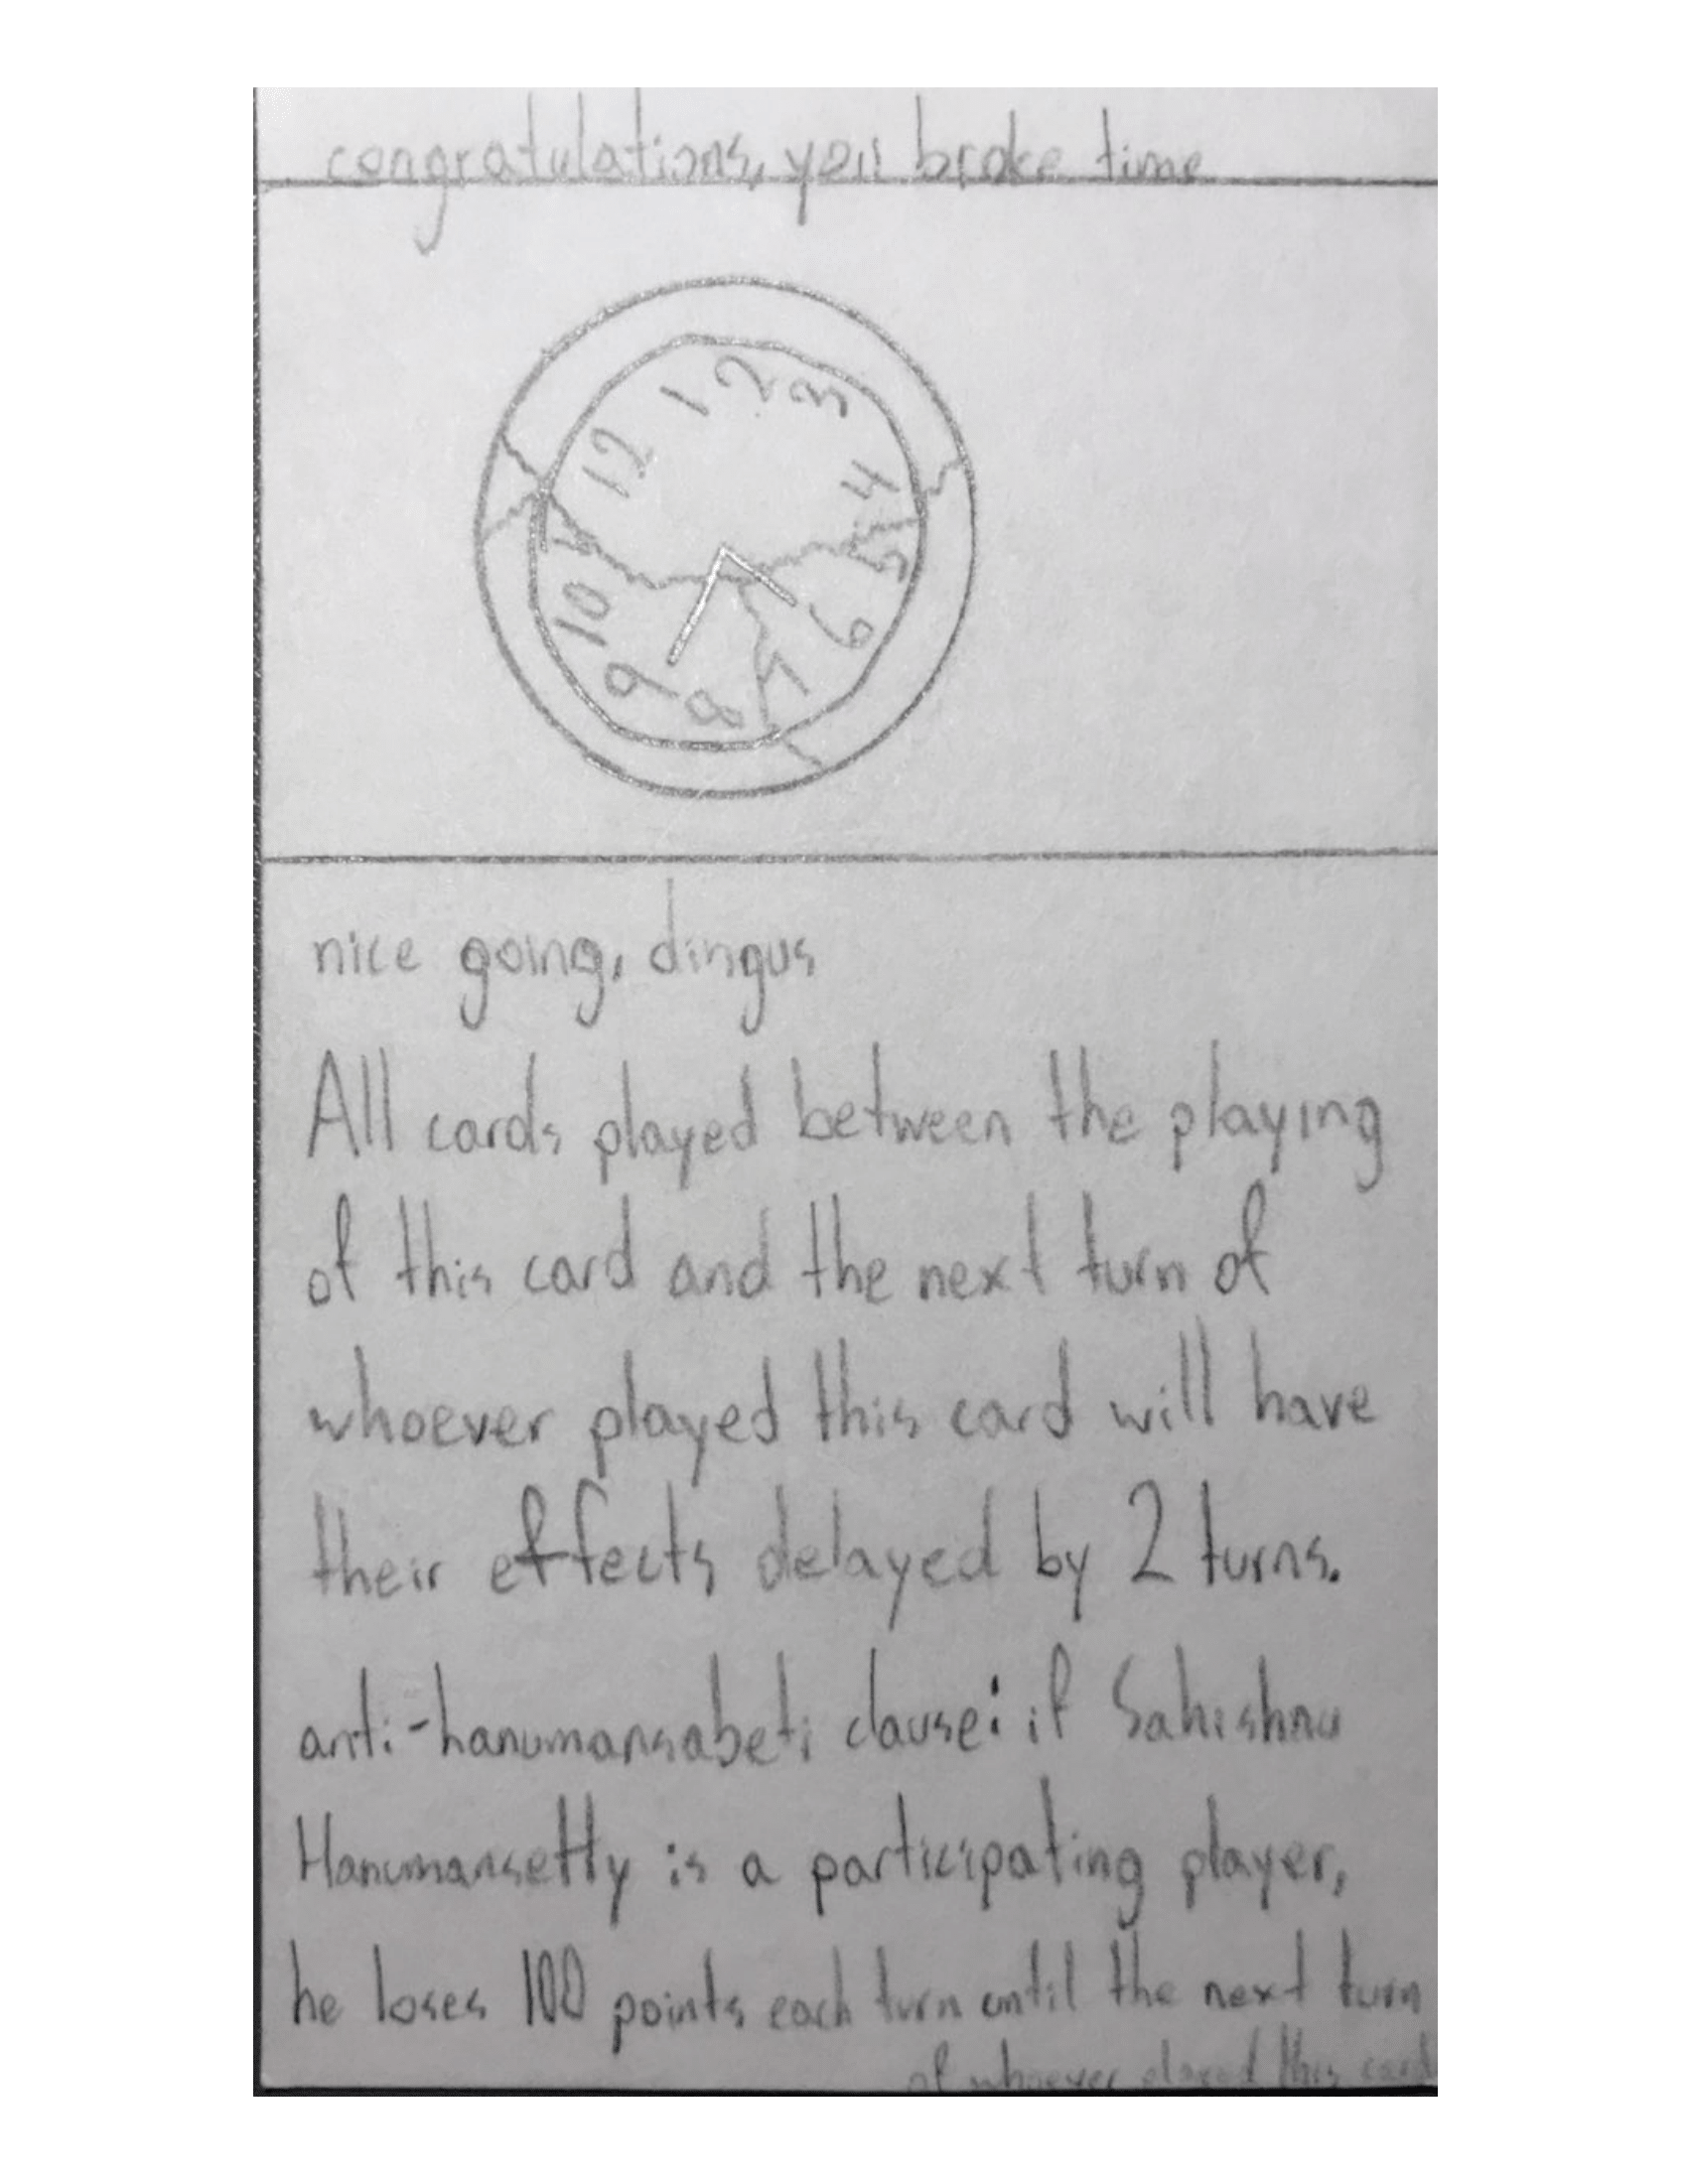 congratulations, you broke time
12 1 2 3
4
5
6
7
8
9
10
nice going, dingus
All cards played between the playing
of this card and the next turn of
whoever played this card will have
their effects delayed by 2 turns.
anti-hanumansabeti clause: if Sahishnu
Hanumansetty is a participating player,
he loses 100 points each turn until the next turn
of whoever played this card